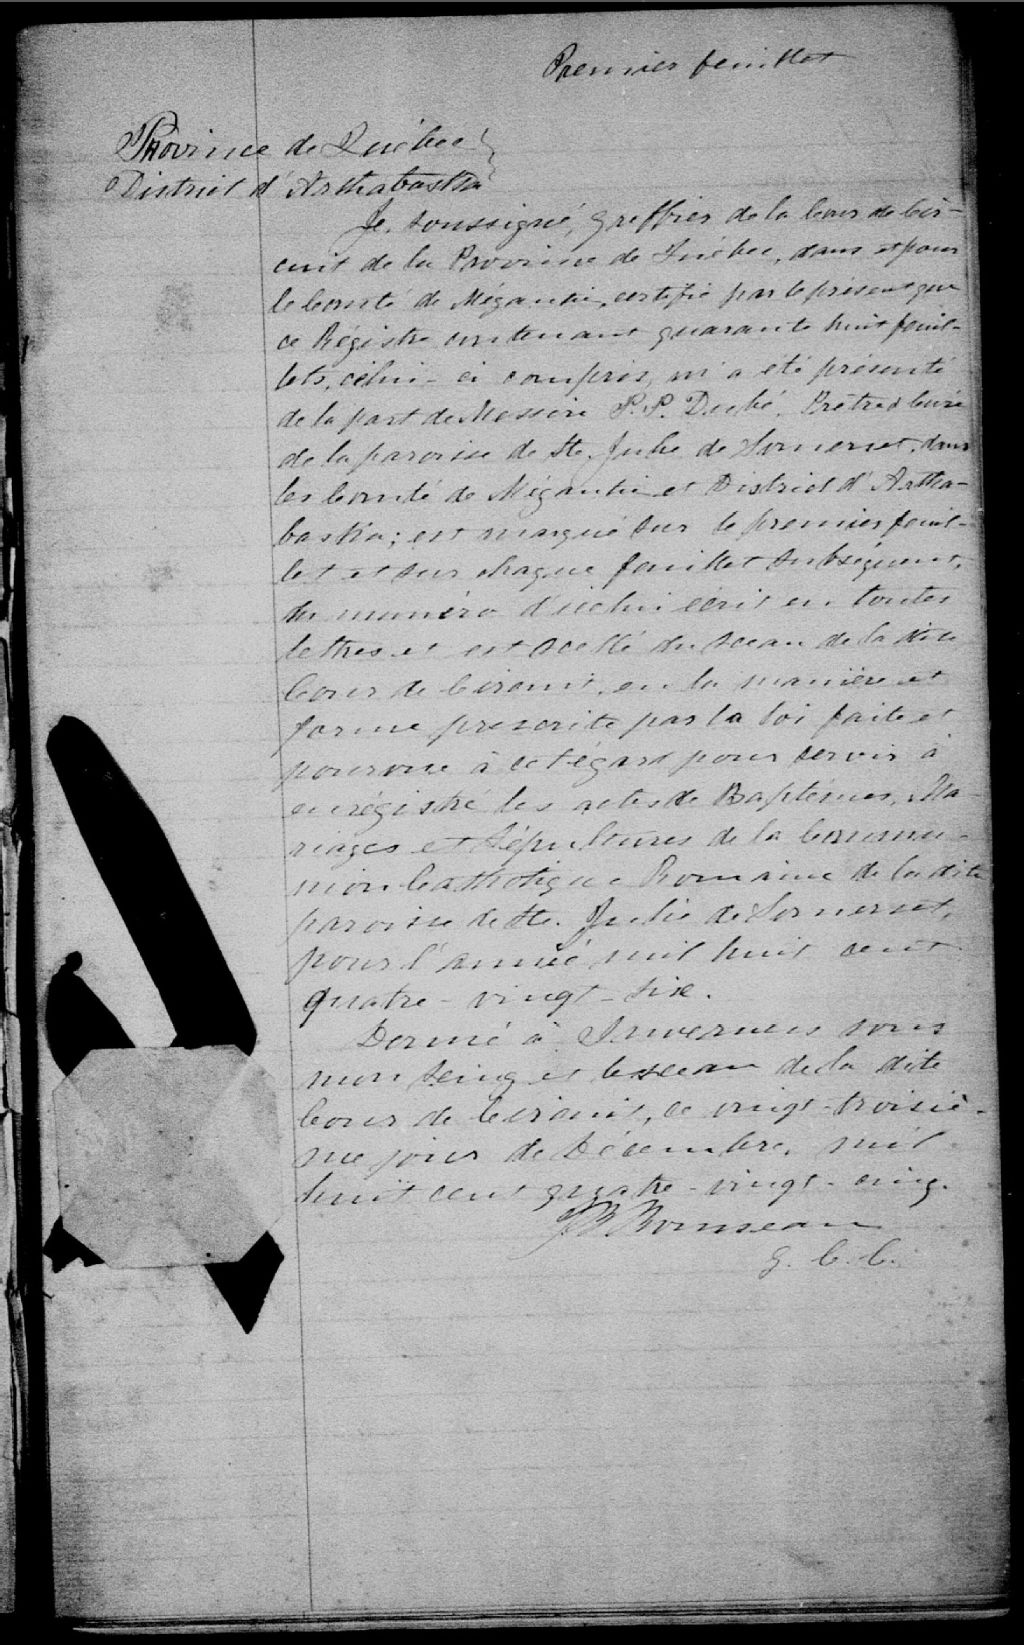 Premier feuillet
Province de Québec }
District d'Arthabaska
Je, soussigné, Greffier de la Cour de Cir-
cuit de la Province de Québec, dans et pour
le Comté de Mégantic, certifie par le présent que
ce Régistre contenant quarante huit feuil-
lets, célui-ci compris, m'a été présenté
de la part de Messire P. P. Dubé, Prêtre & Curé
de la paroisse de Ste. Julie de Somerset, dans
les Comté de Mégantic et District d'Artha-
baska; est marqué sur le premier feuil-
let et sur chaque feuillet subséquent,
du numéro d'icelui écrit en toutes
lettres et est scellé du sceau de la dite
Cour de Circuit, en la manière et
forme prescrite par la loi faite et
pourvue à cet égard pour servir à
enrégistré les actes de Baptêmes, Ma-
riages et Sépultures de la Commu-
nion Catholique Romaine de la dite
paroisse de Ste. Julie de Somerset,
pour l'année mil huit cent
quatre-vingt-six.
Donné à Inverness sous
mon seing et le sceau de la dite
Cour de Circuit, ce vingt-troisiè-
me jour de Décembre, mil
huit cent quatre-vingt-cinq.
Rousseau
G. C. C.